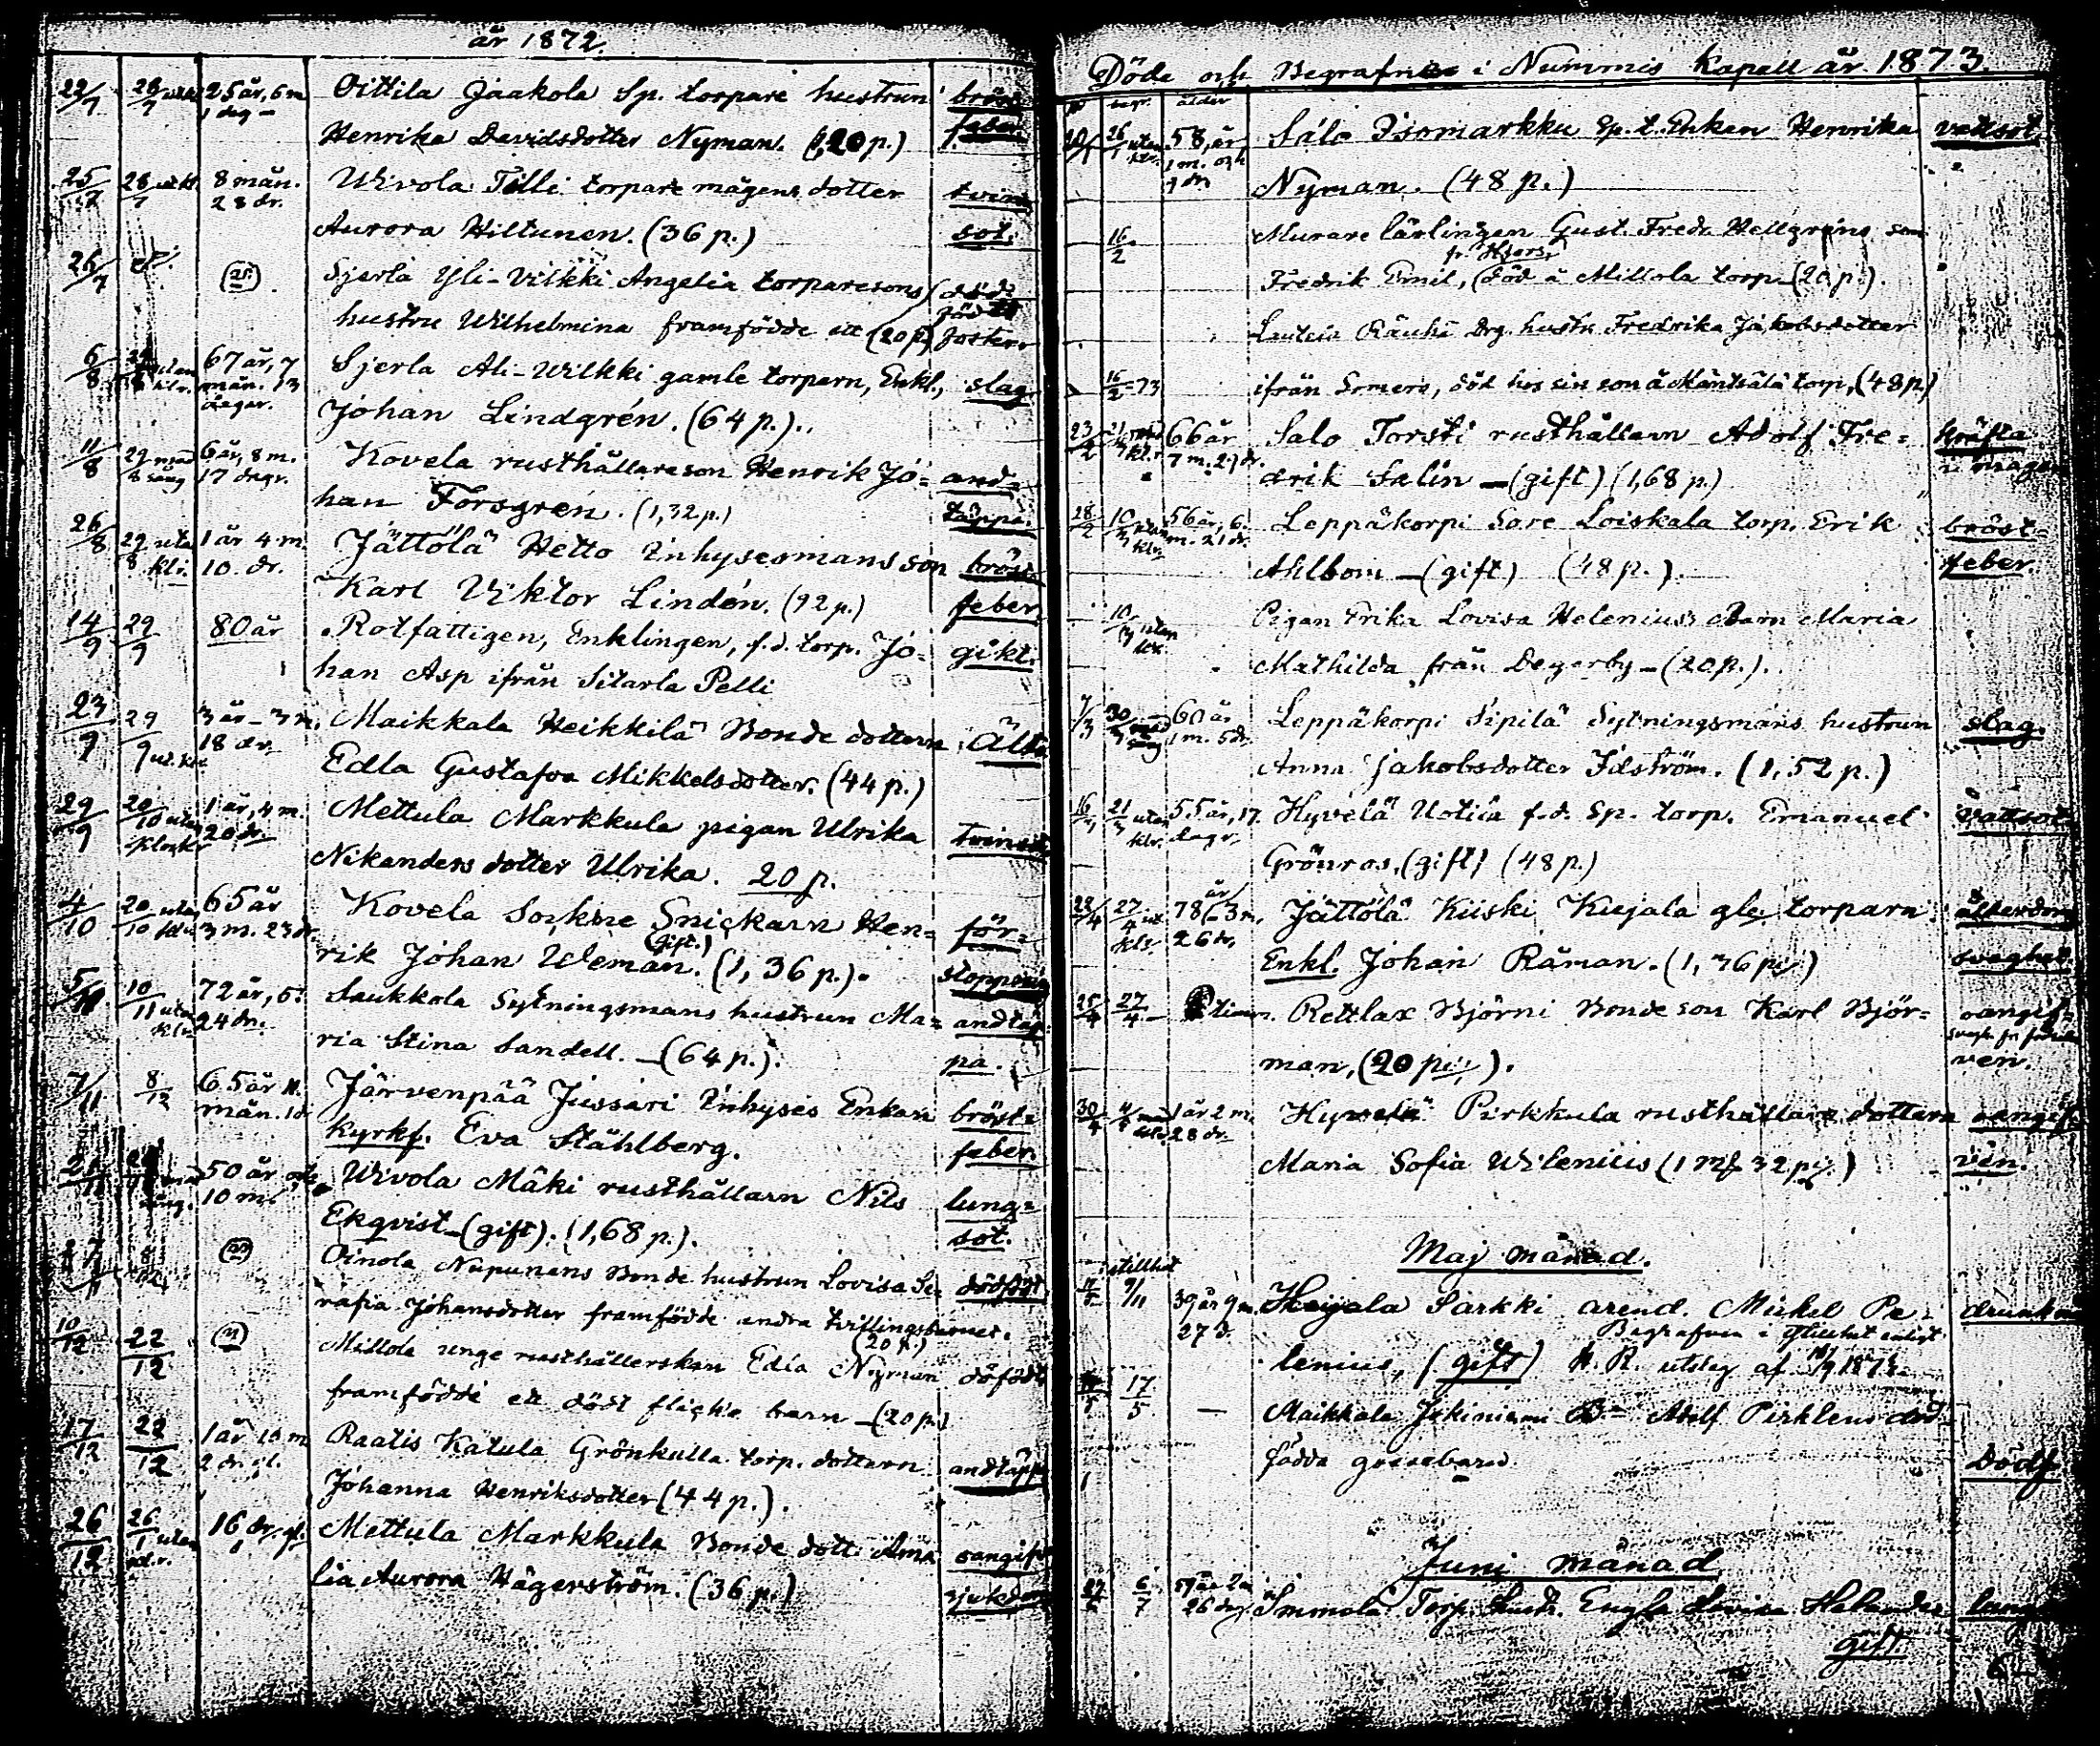 år 1872.
22/7 28/7 25 år, 6 m Oittila Jaakola Sp. torpare hustrun bröst
1 dag Henrika Davidsdotter Nyman. (1,20 p.) feber.
25/7 28/7 8 mån. Uivola Tilli torpare mågens dotter tvin
28 dr. Aurora Hiltunen. (36 p.) sot.
26/7 Sjerla Yli-Vilkki Angelia torparesons död
hustru Wilhelmina framfödde ett (20 p.) foster.
6/8 67 år, 7 Sjerla Ali-Wilkki gamle torparn, Enkl., slag
mån. 13 dagar. Johan Lindgrén. (64 p.).
11/8 29 med 6 år, 8 m. Kovela rusthållareson Henrik Jo= and=
8 sång 17 dagr. han Forsgrén. (1,32 p.) täppa.
26/8 29 utan 1 år 4 m. Jättölä Hetto Inhysesmans son bröst
8 klr. 10. dr. Karl Viktor Lindén. (92 p.) feber.
14/9 29/9 80 år Rotfattigen, Enklingen, f.d. torp. Jo= gikt.
han Asp ifrån Sitarla Pelli
23/9 29/9 3 år - 3 m. Maikkala Heikkilä Bonde dottern Ält
18 dr. Edla Gustafva Mikkelsdotter. (44 p.)
29/9 20/10 utan 1 år, 4 m. Mettula Markkula pigan Ulrika tvinsot
klockr 20 dr. Nikanders dotter Ulrika. 20 p.
4/10 20/10 utan 65 år Kovela Snickarn Hen= för=
3 m. 23 dr. rik Johan Weman. (gift.) (1,36 p.). stoppning
5/11 10/11 utan 72 år, 5. Saukkola Sytningsmans hustrun Ma= andtäp=
klr 24 dr. ria Stina Sandell. — (64 p.). pa.
7/11 8/12 65 år 11. Järvenpää Jussari Inhyses Enkan bröst=
mån. kyrkf. Eva Ståhlberg. feber.
50 år och Uivola Mäki rusthållarn Nils lung=
sång. 10 m. Ekqvist — (gift). (1,68 p.). sot.
Oinola Napunens Bonde hustrun Lovisa Se= dödfödt
rafia Johansdotter framfödde andra tvillingsbarnet.
(20 p.)
10/12 22/12 Millola unge rusthållerskan Edla Nyman döfödt
framfödde ett dödt flicke barn — (20 p.)
17/12 22/12 1 år 10 m Raatis Katula Grönkulla torp. dottern andtäpp
2 dr gl. Johanna Henriksdotter (44 p.).
26/12 26/1 utan 16 dr. gl. Mettula Markkula Bonde dott. Ama= oangifv
klr. lia Aurora Hägerström. (36 p.) sjukdom
Döde och Begrafne i Nummis Kapell år 1873.
begr. ålder
26/1 utan 58 år Salo Isomarkku Sp. t. Enkan Henrika vattsot
klr. 1 m. och 9 dr Nyman. (48 p.)
16/2 Murare lärlingen Gust. Fredr. Hellgréns son
fr. H:fors
Fredrik Emil, (död å Millola torp — (20 p.).
Lauteia Räuhi Drg. hustr. Fredrika Jakobsdotter
16/2 73 ifrån Somero, död hos sin son å Mäntsälä torp, (48 p.)
23/2 66 år Salo Torsti rusthållarn Adolf Fre= kräfta
7 m. 27 dr. drik Salin — (gift) (1,68 p.) i magen
28/2 10/3 utan 56 år, 6. Leppäkorpi Sore Loiskala torp. Erik bröst=
klr. m. 21 dr. Ahlbom — (gift) (48 p.). feber.
10/3 utan Pigan Erika Lovisa Helenius's Barn Maria
klr. Mathilda från Degerby — (20 p.).
7/3 30/3 med 60 år Leppäkorpi Sipilä Sytningsmans hustrun slag.
sång 1 m. 5 dr. Anna Jakobsdotter Idström. (1,52 p.)
16/3 21/3 utan 55 år, 17. Hyvelä Uotila f.d. Sp. torp. Emanuel vattsot
klr. dagr. Grönros, (gift) (48 p.)
22/4 27/4 ut 78 år 3 m. Jättölä Kiiski Kujala gle. torparn ålderdom
klr 26 dr. Enkl. Johan Råman. (1,76 p.) svaghet.
25/4 27/4 timr. Rettlax Björni Bonde son Karl Björ= oangif=
man, (20 p.). ven.
30/4 1 år 2 m. Hyvelä Pirkkula rusthållare dottern oangif
28 dr. Maria Sofia Wilenius (1 mk 32 p.) ven.
Maj månad.
stillhet
9/11 39 år 9 m. Heijala Särkki arend. Mickel Pe= drunkn
27 d. Begrafven i stillhet enligt
lenius, (gift) H. R. utslag af
17/5 — Maikkala Jakiniemi Adolf Pirklens död
födda gossebarn Dödf
Juni månad
6/7 26 dg Immola Torp. hustr. Engla Lovisa lung
gift